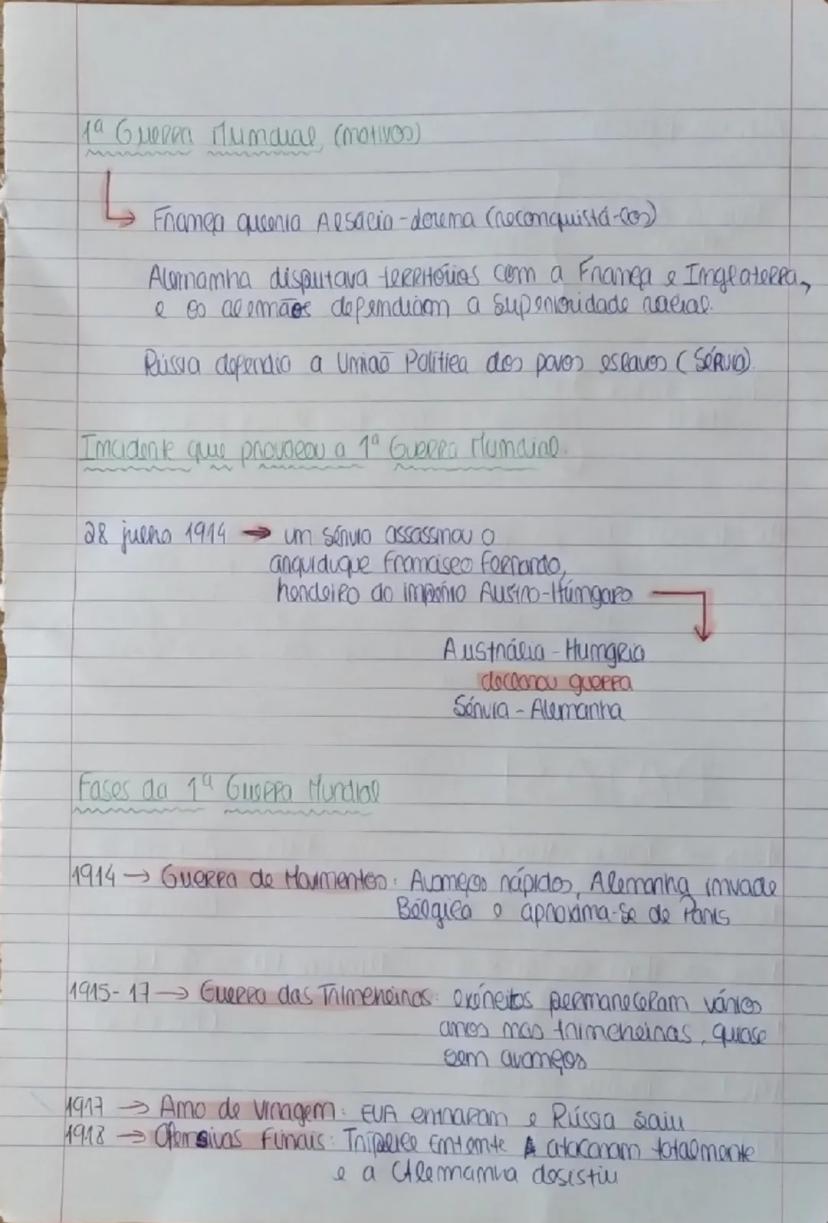 1ª Guerra Mundial (motivos)
França queria Alsacia-Lorena (reconquistá-los)
Alemanha disputava territórias com a França e Inglaterra,
e os alemães dependiam a superioridade racial.
Rússia dependia a União Política dos povos eslavos (Sérvia)
Incidente que provocou a 1ª Guerra Mundial.
28 julho 1914 → um sérvio assassinou o
arquiduque Francisco Fernando,
herdeiro do império Austro-Húngaro
Austrália-Hungria
declarou guerra
Sérvia - Alemanha
Fases da 1ª Guerra Mundial
1914 → Guerra de Movimentos: Avanços rápidos, Alemanha invade
Bélgica e aproxima-se de Paris
1915-17 → Guerra das Trincheiras: exércitos permaneceram vários
anos nas trincheiras, quase
sem avanços
1917 → Ano de viragem: EUA entraram e Rússia saiu
1918 → Ofensivas Finais: Tríplice Entente atacaram totalmente
e a Alemanha desistiu